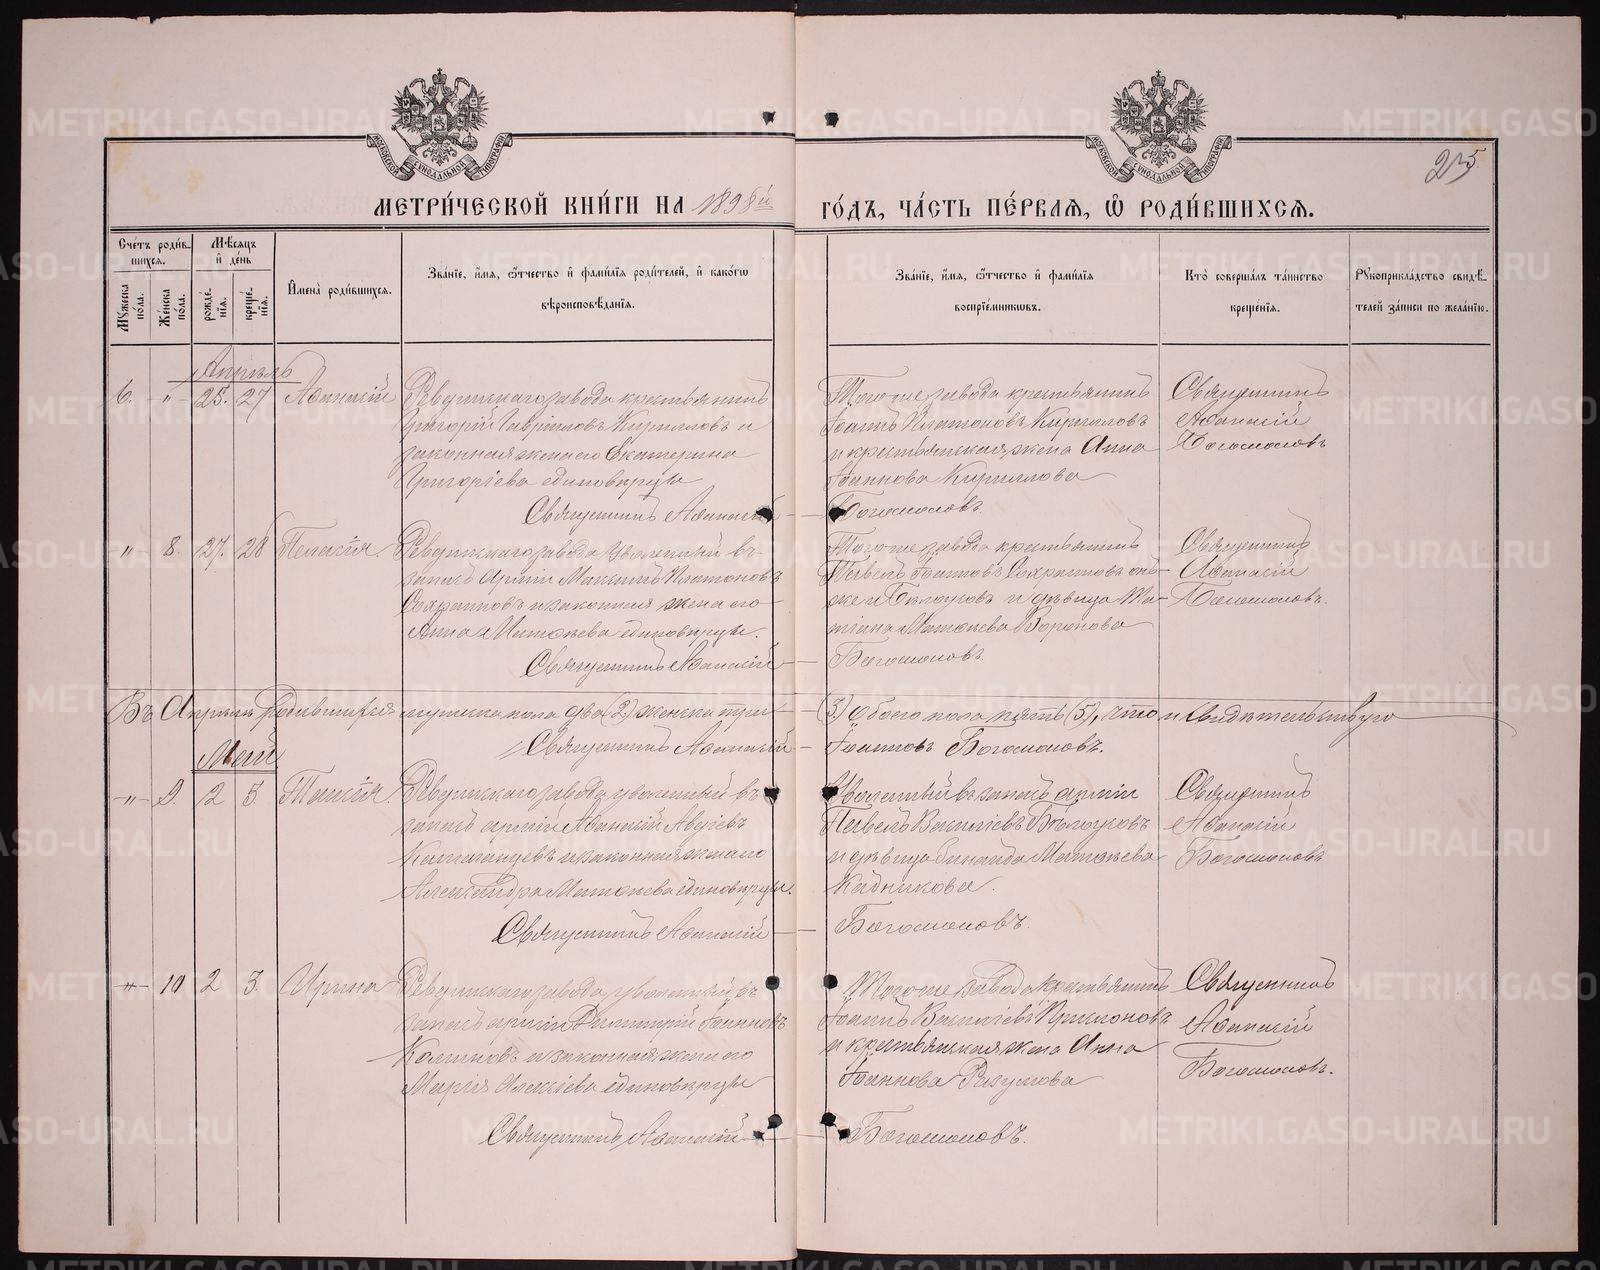 МОСКОВСКОЙ СѴНОДАЛЬНОЙ ТИПОГРАФІИ
МОСКОВСКОЙ СѴНОДАЛЬНОЙ ТИПОГРАФІИ
МЕТРИ́ЧЕСКОЙ КНИ́ГИ НА 1898й ГО́ДЪ, ЧА́СТЬ ПЕ́РВАЯ, Ѡ РОДИ́ВШИХСЯ.
Сче́тъ роди́в-
шихся.
Мꙋ́жеска по́ла.
Же́нска по́ла.
Мѣ́сяцъ и де́нь
рожде́нїя.
креще́нїя.
И̓мена̀ роди́вшихся.
Зва́нїе, и́мя, ѻ́тчество и фами́лїя роди́телей, и како́гѡ
вѣроисповѣ́данїя.
Зва́нїе, и́мя, ѻ́тчество и фами́лїя
воспрїе́мникѡвъ.
Кто̀ соверша́лъ та́инство
креще́нїя.
Рꙋкоприкла́дство свидѣ́-
телей за́писи по жела́нїю.
Апрѣль
6. " 25. 27 Аѳанасій
Ревдинскаго завода крестьянинъ
Григорій Гавріиловъ Кирилловъ и
законная жена его Екатерина
Григоріева единовѣрцы
Священникъ Аѳанасій Богомоловъ
Тогоже завода крестьянинъ
Іоаннъ Платоновъ Кирилловъ
и крестьянская жена Анна
Іоаннова Кириллова
Священникъ
Аѳанасій
Богомоловъ
" 8. 27. 28 Пелагія
Ревдинскаго завода уволенный въ
запасъ арміи Максимъ Платоновъ
и законная жена его
Анна Матѳеева единовѣрцы.
Священникъ Аѳанасій Богомоловъ
Тогоже завода крестьянинъ
Павелъ Іоанновъ онъ-
же и Бѣлоусовъ и дѣвица Та-
тіана Матѳеева Воронова
Священникъ
Аѳанасій
Богомоловъ.
Въ Апрѣлѣ родившихся мужска пола два (2) женска три (3) обоего пола пять (5), что и свидѣтельствую
Священникъ Аѳанасій Іоанновъ Богомоловъ.
Май
" 9. 2 3. Таисія.
Ревдинскаго завода уволенный въ
запасъ арміи Аѳанасій
и законная жена его
Александра Матѳеева единовѣрцы.
Священникъ Аѳанасій Богомоловъ.
Уволенный въ запасъ арміи
Павелъ Василіевъ Бѣлоусовъ
и дѣвица Зинаида Матѳеева
Кадникова.
Священникъ
Аѳанасій
Богомоловъ
" 10 2 3. Ирина
Ревдинскаго завода уволенный въ
запасъ арміи Димитрій Іоанновъ
и законная жена его
Марія Алексіева единовѣрцы
Священникъ Аѳанасій Богомоловъ.
Тогоже завода крестьянинъ
Іоаннъ Василіевъ
и крестьянская жена Анна
Іоаннова Разумова
Священникъ
Аѳанасій
Богомоловъ.
METRIKI.GASO-URAL.RU